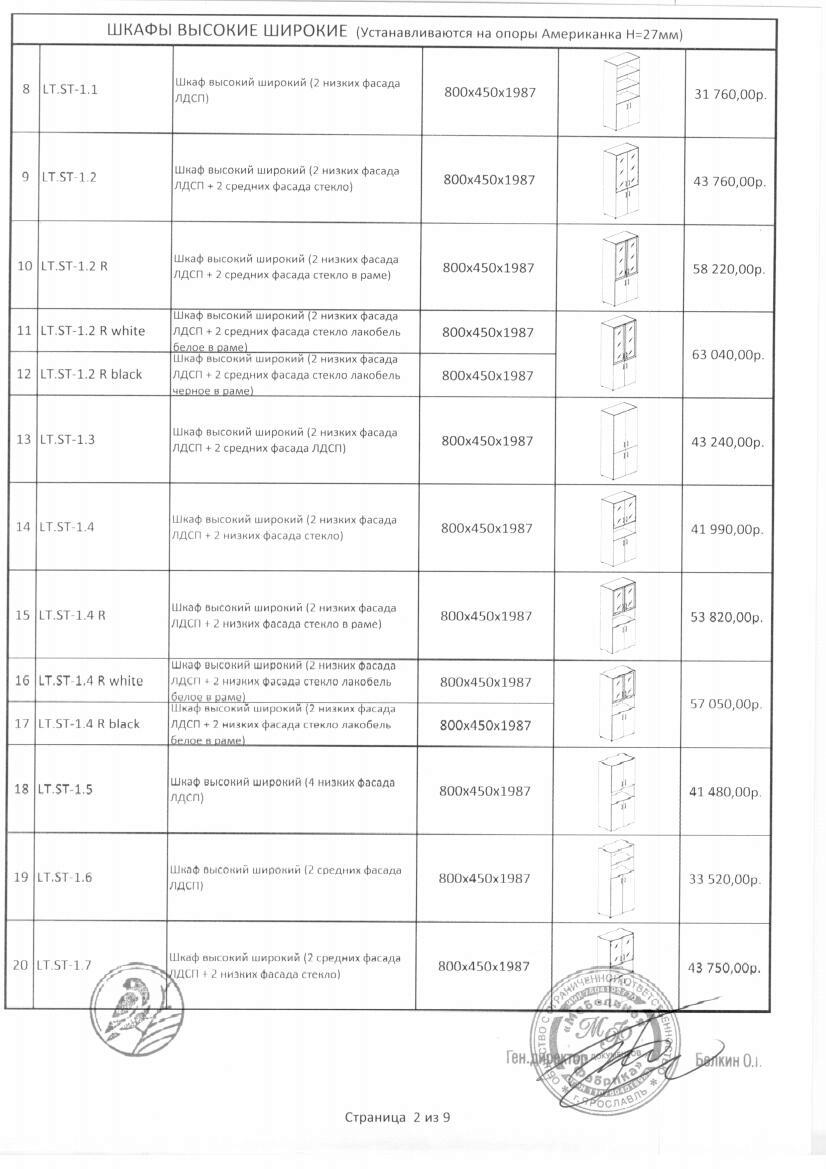 ШКАФЫ ВЫСОКИЕ ШИРОКИЕ (Устанавливаются на опоры Американка H=27мм)
8 LT.ST-1.1 Шкаф высокий широкий (2 низких фасада
ЛДСП) 800х450х1987 31 760,00р.
9 LT.ST-1.2 Шкаф высокий широкий (2 низких фасада
ЛДСП + 2 средних фасада стекло) 800х450х1987 43 760,00р.
10 LT.ST-1.2 R Шкаф высокий широкий (2 низких фасада
ЛДСП + 2 средних фасада стекло в раме) 800х450х1987 58 220,00р.
11 LT.ST-1.2 R white Шкаф высокий широкий (2 низких фасада
ЛДСП + 2 средних фасада стекло лакобель
белое в раме) 800х450х1987 63 040,00р.
12 LT.ST-1.2 R black Шкаф высокий широкий (2 низких фасада
ЛДСП + 2 средних фасада стекло лакобель
черное в раме) 800х450х1987
13 LT.ST-1.3 Шкаф высокий широкий (2 низких фасада
ЛДСП + 2 средних фасада ЛДСП) 800х450х1987 43 240,00р.
14 LT.ST-1.4 Шкаф высокий широкий (2 низких фасада
ЛДСП + 2 низких фасада стекло) 800х450х1987 41 990,00р.
15 LT.ST-1.4 R Шкаф высокий широкий (2 низких фасада
ЛДСП + 2 низких фасада стекло в раме) 800х450х1987 53 820,00р.
16 LT.ST-1.4 R white Шкаф высокий широкий (2 низких фасада
ЛДСП + 2 низких фасада стекло лакобель
белое в раме) 800х450х1987 57 050,00р.
17 LT.ST-1.4 R black Шкаф высокий широкий (2 низких фасада
ЛДСП + 2 низких фасада стекло лакобель
белое в раме) 800х450х1987
18 LT.ST-1.5 Шкаф высокий широкий (4 низких фасада
ЛДСП) 800х450х1987 41 480,00р.
19 LT.ST-1.6 Шкаф высокий широкий (2 средних фасада
ЛДСП) 800х450х1987 33 520,00р.
20 LT.ST-1.7 Шкаф высокий широкий (2 средних фасада
ЛДСП + 2 низких фасада стекло) 800х450х1987 43 750,00р.
ОБЩЕСТВО С ОГРАНИЧЕННОЙ ОТВЕТСТВЕННОСТЬЮ
«Мебельная
МФ
документов
Фабрика»
г. ЯРОСЛАВЛЬ
Ген.директор Белкин О.
Страница 2 из 9